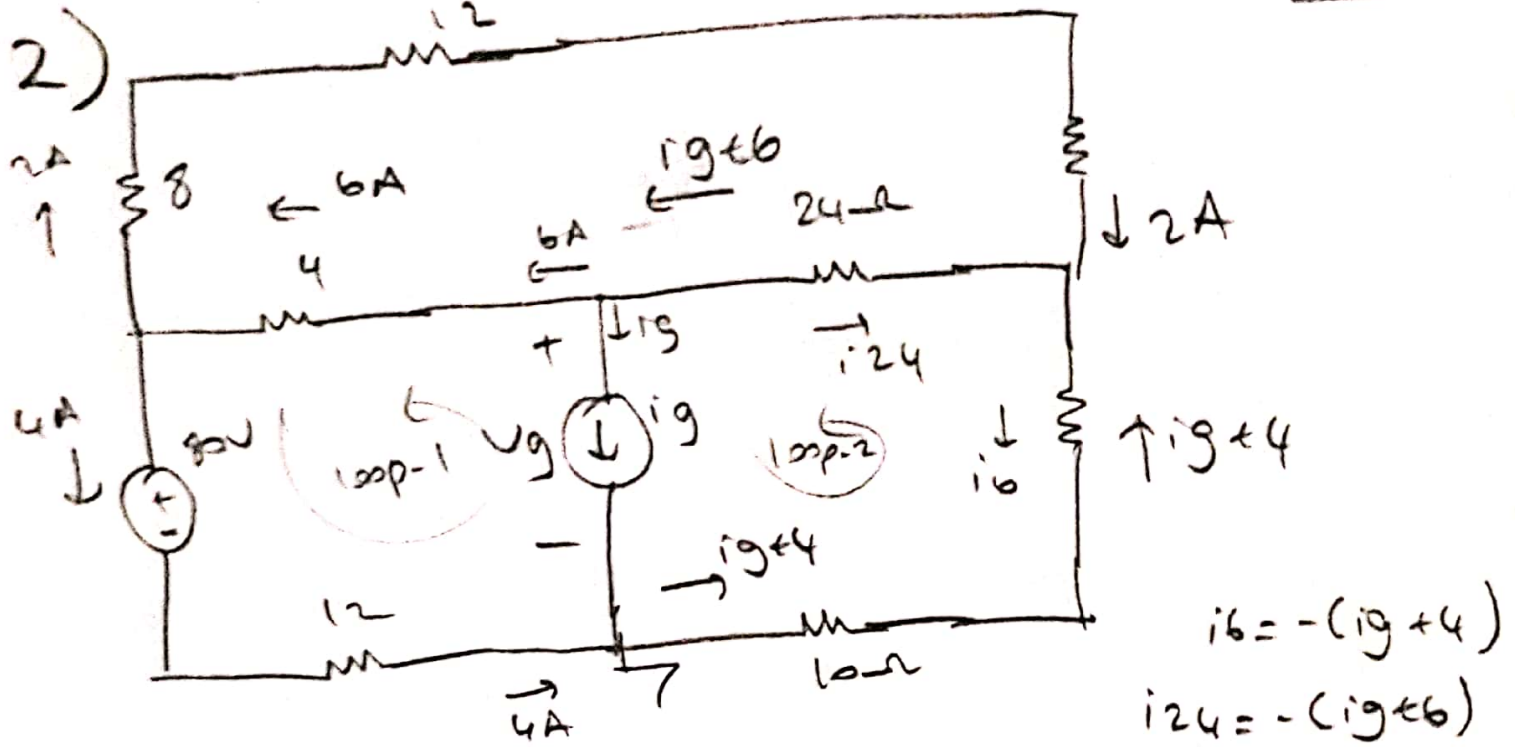 2)
12
2A
8
6A
ig+6
24Ω
2A
4
6A
ig
i24
+
4A
80V
loop-1
Vg
ig
loop-2
i6
ig+4
+
-
-
ig+4
12
4A
10Ω
i6=-(ig+4)
i24=-(ig+6)